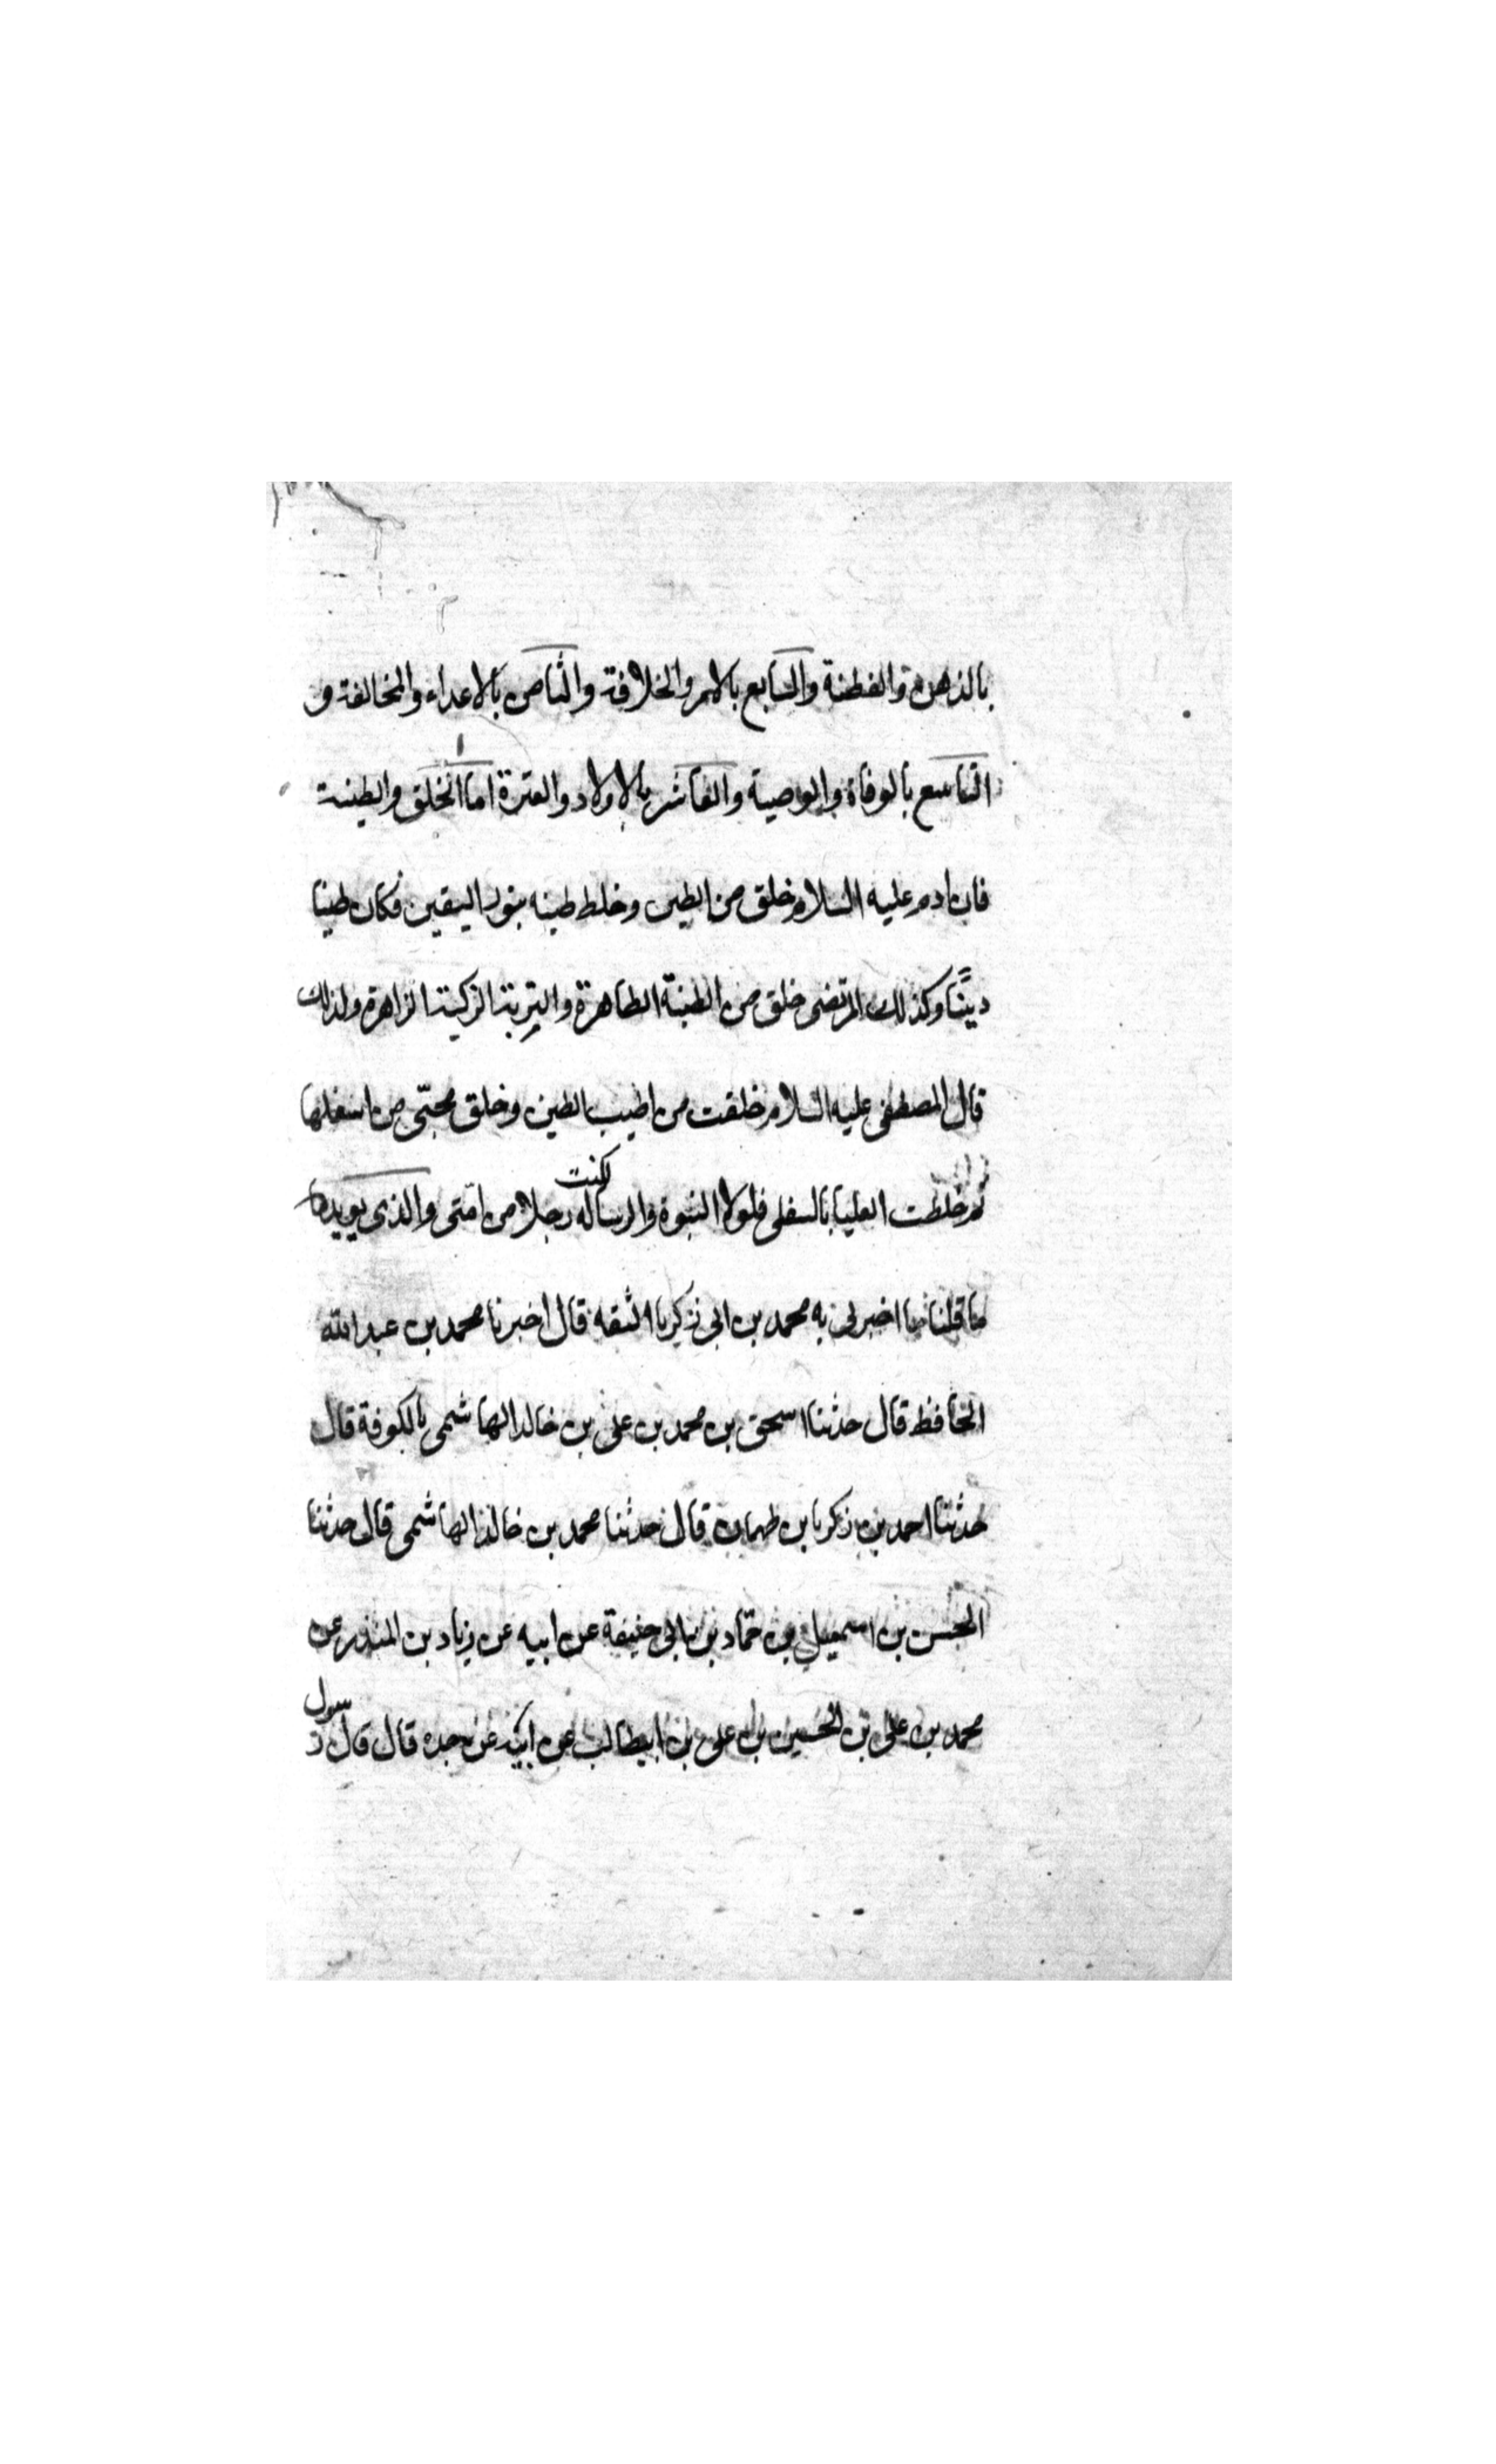 بالذهن والفطنة والسابع بالامر والخلافة والثامن بالاعداء والمخالفة و
التاسع بالوفاة والوصية والعاشر بالاولاد والعترة اما الخلق والطينة
فان ادم عليه السلام خلق من الطين وخلط طينه بنور اليقين فكان طينا
دينًا وكذلك المرتضى خلق من الطينة الطاهرة والتربة الزكية الزاهرة ولذلك
قال المصطفى عليه السلام خلقت من اطيب الطين وخلق محبّى من اسفلها
ثم خلطت العليا بالسفلى فلولا النبوة والرساله لكنت رجلا من امّتى والذى يويد
ما قلنا ما اخبرنى به محمد بن ابى زكريا الثقه قال اخبرنا محمد بن عبد الله
الحافظ قال حدثنا اسحق بن محمد بن على بن خالد الهاشمى بالكوفة قال
حدثنا احمد بن زكريا بن طهمان قال حدثنا محمد بن خالد الهاشمى قال حدثنا
الحسن بن اسمعيل بن حمّاد بن ابى حنيفة عن ابيه عن زياد بن المنذر عن
محمد بن على بن الحسين بن على بن ابيطالب عن ابيه عن جده قال قال رسول